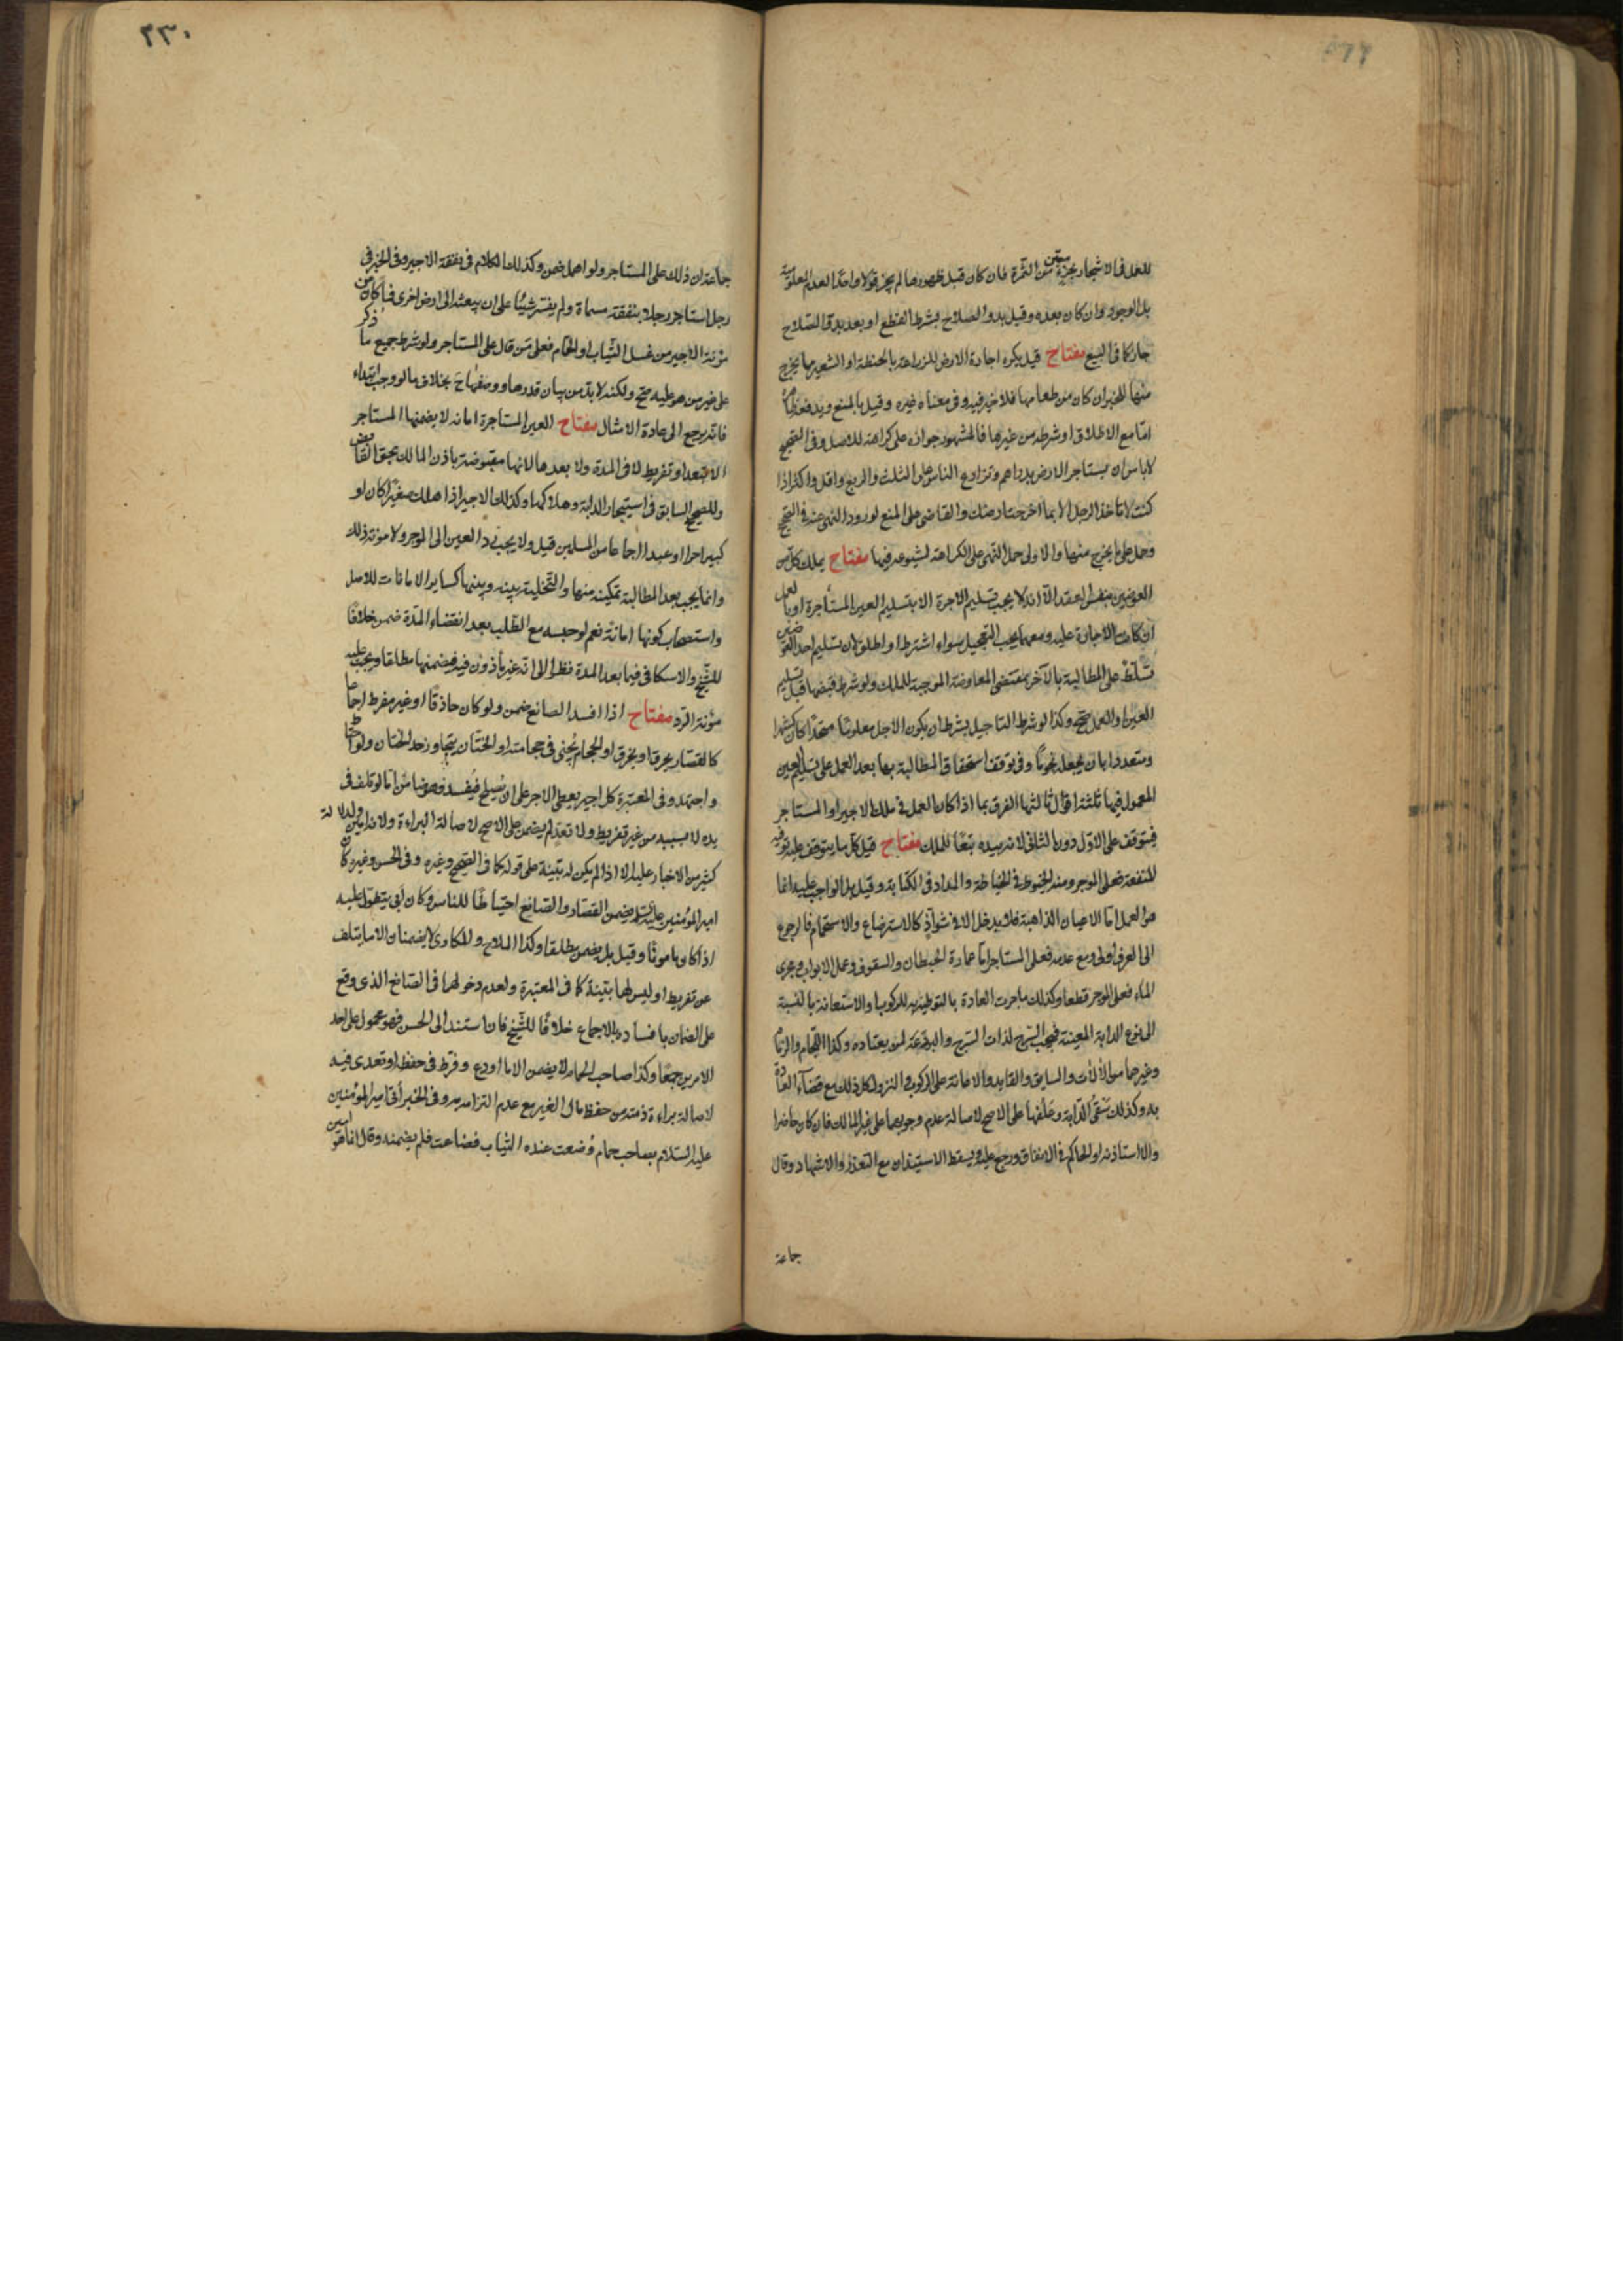 للعمل فى الاشجار بجزء معيّن من الثمرة فان كان قبل ظهورها لم يجز قولا واحدا لعدم المعلومية
بل الوجود وان كان بعده وقبل بدو الصلاح بشرط القطع او بعد بدو الصلاح
جاز كما فى البيع مفتاح قيل يكره اجارة الارض للزراعة بالحنطة او الشعير مما يخرج
منها للخبر ان كان من طعامها فلا خير فيه وفى معناه غيره وقيل بالمنع ويدفعه
امّا مع الاطلاق او شرطه من غيرها فالمشهور جوازه على كراهة للاصل وفى الصحيح
لا باس ان يستاجر الارض بدراهم وتزارع الناس على الثلث والربع واقل واكثر اذا
كنت لا تاخذ الرجل الا بما اخرجت ارضك والقاضى على المنع لورود النهى عنه فى الصحيح
وحمل على ما يخرج منها والاولى حمل النهى على الكراهة لشيوعه فيها مفتاح يملك كل من
العوضين بنفس العقد الّا انه لا يجب تسليم الاجرة الا بتسليم العين المستأجرة او بالعمل
ان كانت الاجارة عليه ومعهما يجب التعجيل سواء اشترط او اطلق لان تسليم احد العوضين
تسلّط على المطالبة بالآخر بمقتضى المعاوضة الموجبة للملك ولو شرط قبضها قبل تسليم
العين او العمل صح وكذا لو شرط التاجيل بشرط ان يكون الاجل معلومًا متحدًا كان كشهر
ومتعددا بان يجعل نجومًا وفى توقف استحقاق المطالبة بها بعد العمل على تسليم العين
المعمول فيها ثلثة اقوال ثالثها الفرق بما اذا كان العمل فى ملك الاجير او المستاجر
فيتوقف على الاوّل دون الثانى لانه بيده تبعًا للملك مفتاح قيل كل ما يتوقف عليه توفية
المنفعة فعلى الموجر ومنه الخيوط فى الخياطة والمداد فى الكتابة وقيل بل الواجب عليه انما
هو العمل امّا الاعيان الذاهبة فلا يدخل الا فى شواذّ كالاسترضاع والاستحمام فالرجوع
الى العرف اولى ومع عدمه فعلى المستاجر امّا عمارة الحيطان والسقوف وعمل الابواب ومجرى
الماء فعلى الموجر قطعا وكذلك ما جرت العادة بالتوطية به للركوب او الاستعانة بالنسبة
الى نوع الدابة المعينة فيجب السرج لذات السرج والبرذعة لمن يعتاده وكذا اللجام والزمام
وغيرهما من الآلات والسايق والقايد والاعانة على الركوب والنزول كل ذلك مع قضاء العادة
به وكذلك سقى الدّابة وعلفها على الاصح لاصالة عدم وجوبهما على غير المالك فان كان حاضرا
والا استأذنه او الحاكم فى الانفاق ورجع عليه ويسقط الاستيذان مع التعذر والاشهاد وقال
جماعة
٢٣٠
جماعة ان ذلك على المستاجر ولو اهمل ضمن وكذلك الكلام فى نفقة الاجير وفى الخبر فى
رجل استاجر رجلا بنفقة مسماة ولم يفسّر شيئًا على ان يبعثه الى ارض اخرى فما كان من
مؤنة الاجير من غسل الثياب او الحمام فعلى من قال على المستاجر ولو شرط جميع ما ذكر
على غير من هو عليه صح ولكنه لا بد من بيان قدرها ووصفها ح بخلاف ما لو وجب ابتداء
فانه يرجع الى عادة الامثال مفتاح العين المستاجرة امانة لا يضمنها المستاجر
الا بتعد او تفريط لا فى المدة ولا بعدها لانها مقبوضة باذن المالك بحق القابض
وللصحيح السابق فى استيجار الدابة وهلاكها وكذلك الاجير اذا هلك صغيرًا كان او
كبيرا حرا او عبدا اجماعا من المسلمين قيل ولا يجب رد العين الى الموجر ولا مؤنة ذلك
وانما يجب بعد المطالبة تمكينه منها والتخلية بينه وبينها كسائر الامانات للاصل
واستصحاب كونها امانة نعم لو حبسه مع الطلب بعد انقضاء المدّة ضمن خلافًا
للشيخ والاسكافى فيما بعد المدة نظرا الى انه غير مأذون فيه فيضمنها مطلقا ويجب عليه
مؤنة الرّد مفتاح اذا افسد الصانع ضمن ولو كان حاذقًا او غير مفرط اجماعا
كالقصّار يحرق او يخرق او الحجام يجنى فى حجامته او الختّان يتجاوز حد الختان ولو احتاط
واجتهد وفى المعتبرة كل اجير يعطى الاجر على ان يصلح فيفسد فهو ضامن اما لو تلف فى
يده لا بسببه من غير تفريط ولا تعدّ لم يضمن على الاصح لاصالة البراءة ولانه امين ولدلالة
كثير من الاخبار عليه الا اذا لم يكن له بينة على قوله كما فى الصحيح وغيره وفى الحسن وغيره كان
امير المؤمنين عليه السّلم يضمن القصّار والصّائغ احتياطًا للناس وكان ابى يتطول عليه
اذا كان مامونًا وقيل بل يضمن مطلقا وكذا الملاح والمكارى لا يضمنان الا ما يتلف
عن تفريط او ليس لهما بيّنة كما فى المعتبرة ولعدم دخولهما فى الصّانع الذى وقع
على الضمان بافساده بالاجماع خلافًا للشّيخ فان استند الى الحسن فهو محمول على احد
الامرين جمعًا وكذا صاحب الحمام لا يضمن الا ما اودع وفرّط فى حفظه او تعدى فيه
لاصالة براءة ذمته من حفظ مال الغير مع عدم التزامه به وفى الخبر أتى امير المؤمنين
عليه السّلام بصاحب حمام وُضعت عنده الثياب فضاعت فلم يضمنه وقال انما هو امين